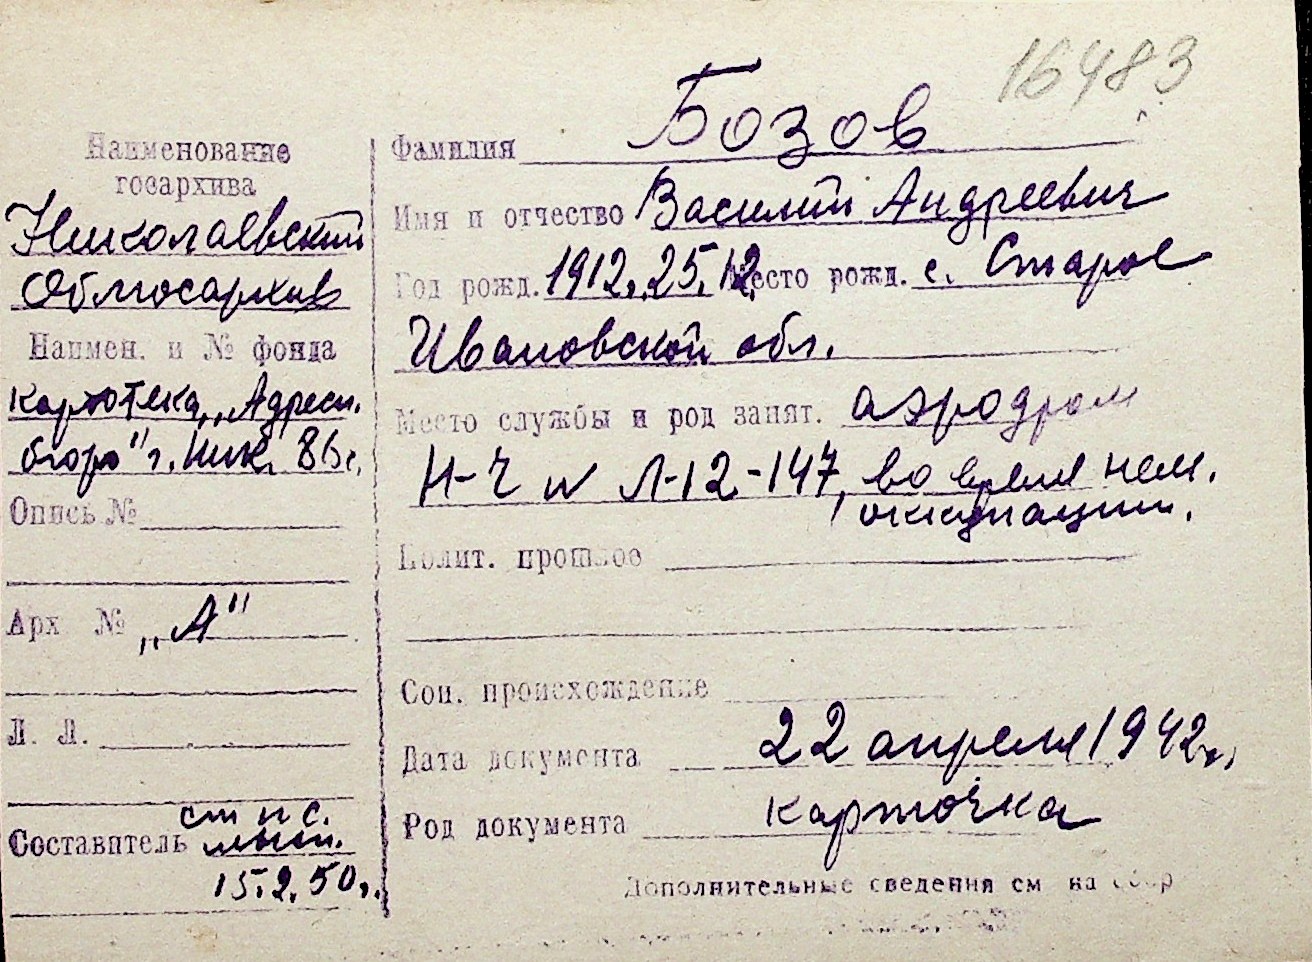 16483
Наименование
госархива
Николаевский
Облгосархив
Наимен. и № фонда
Картотека „Адресн.
бюро" г. Ник.
Опись №
Арх № „А"
Л. Л.
Составитель ст н с.
15.2.50г.
Фамилия Бозов
Имя и отчество Василий Андреевич
Год рожд. 1912. 25. 12. Место рожд. с. Старое
Ивановской обл.
Место службы и род занят. аэродром
Н-Ч Л-12-147, во время нем.
оккупации.
Полит. прошлое
Соц. происхождение
Дата документа 22 апреля 1942г.
Род документа карточка
Дополнительные сведения см на обор